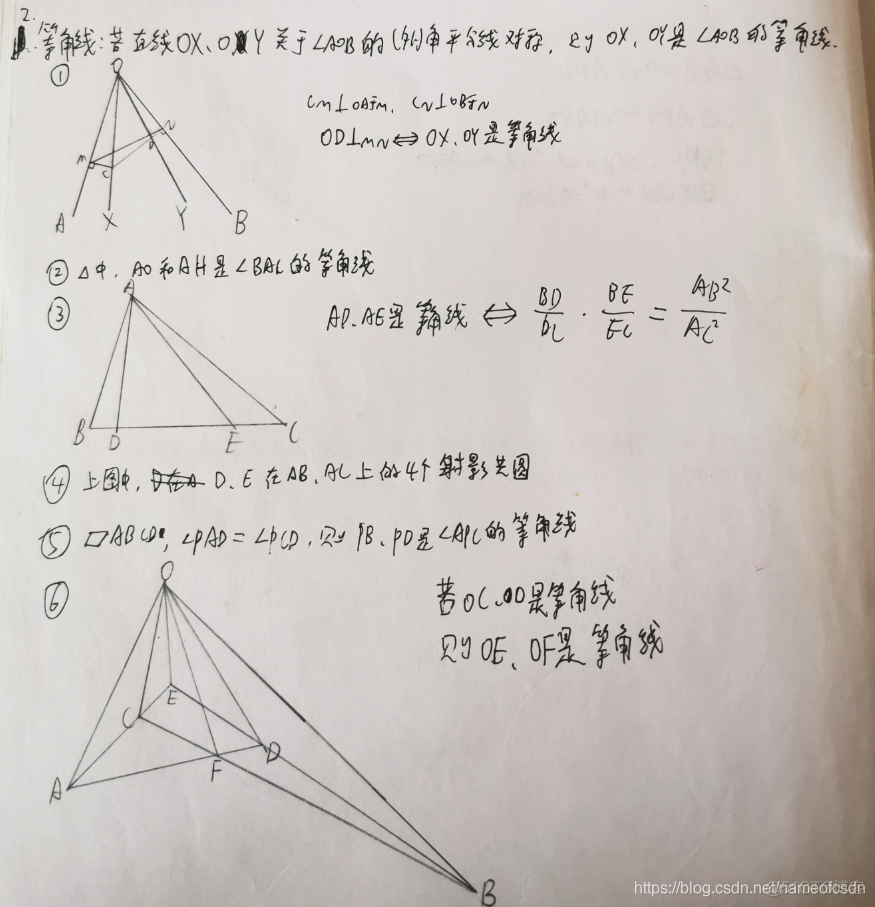 2.
等角线:若直线OX、OY关于∠AOB的(外)角平分线对称,则OX,OY是∠AOB的等角线.
①
O
CM⊥OA于M,CN⊥OB于N
OD⊥MN⇔OX、OY是等角线
M C D N
A X Y B
② △中,AO和AH是∠BAC的等角线
③
A
AD、AE是等角线 ⇔ BD/DC · BE/EC = AB²/AC²
B D E C
④ 上图中,D、E在AB、AC上的4个射影共圆
⑤ ▱ABCD,∠PAD=∠PCD,则PB、PD是∠APC的等角线
⑥
O
若OC、OD是等角线
则OE、OF是等角线
E
C
D
F
A
B
https://blog.csdn.net/nameofcsdn